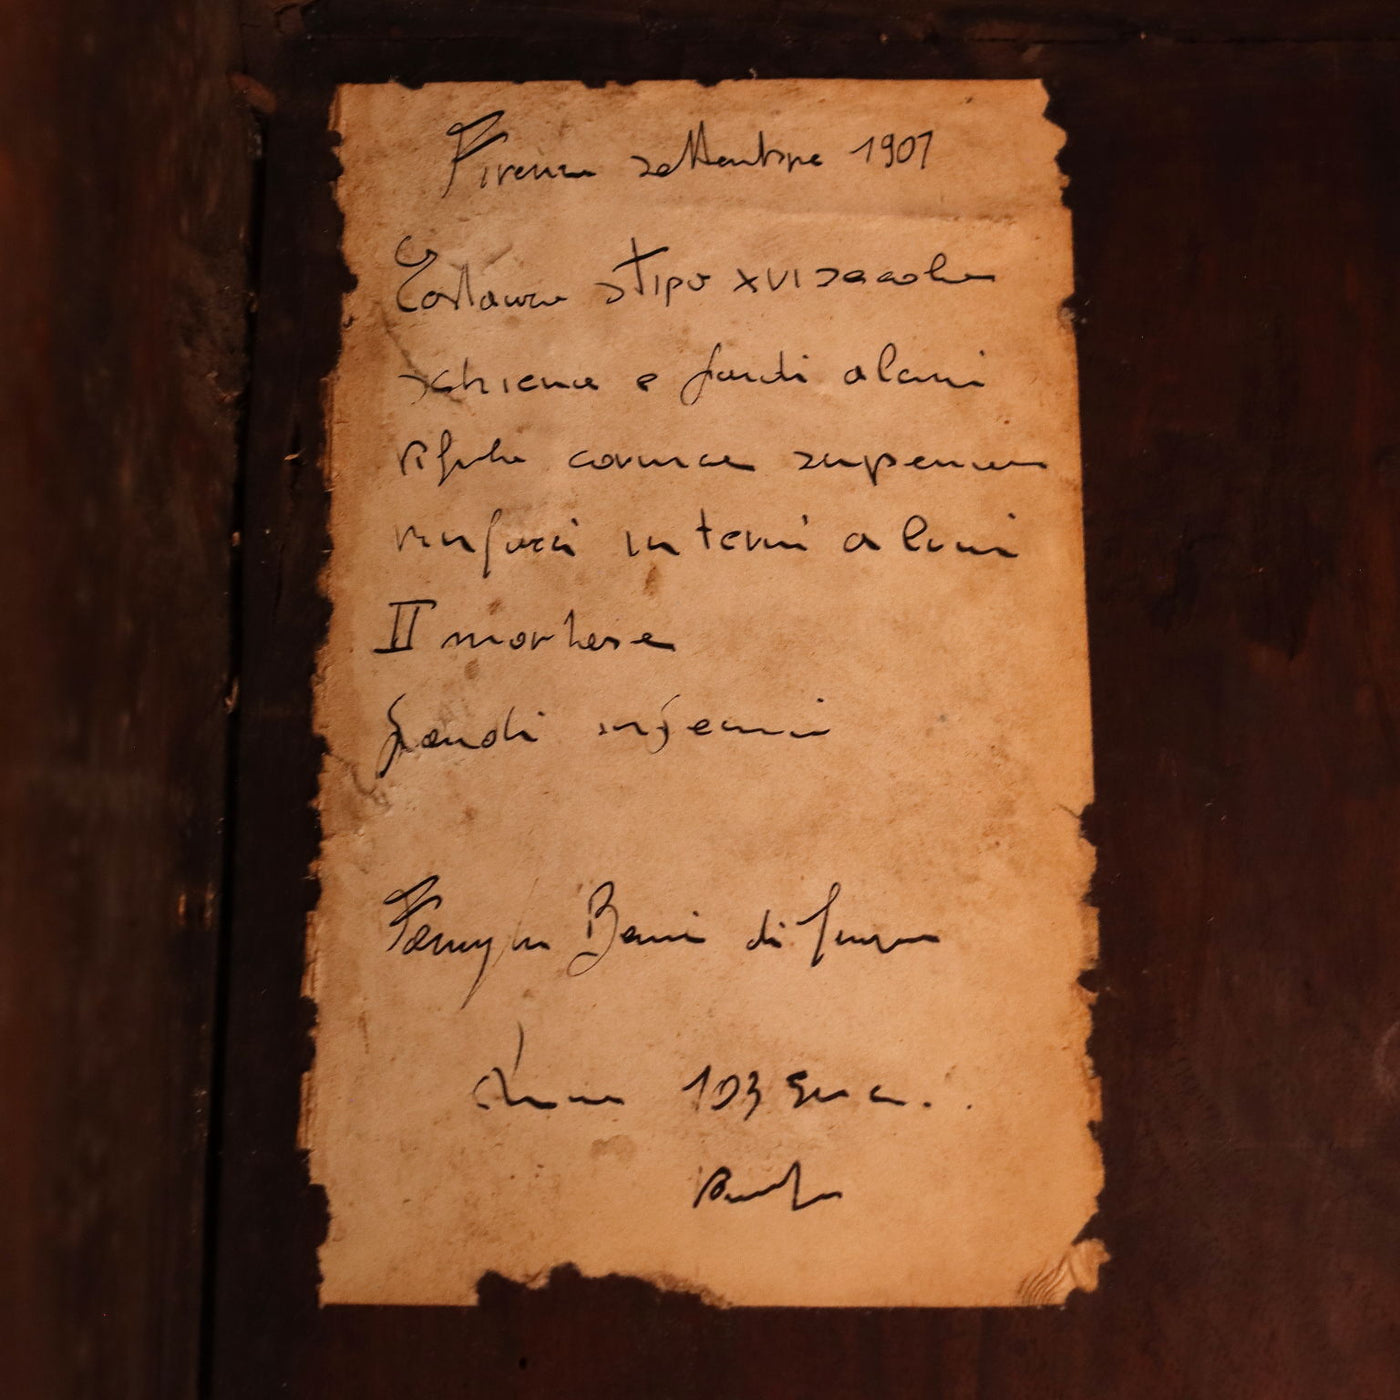 Firenze settembre 1907
Restauro stipo XVI secolo
schiena e fondi alcuni
rifatta cornice superiore
rinforzi interni alcuni
II mortese
fondi inferiori
Famiglia Banci di
103